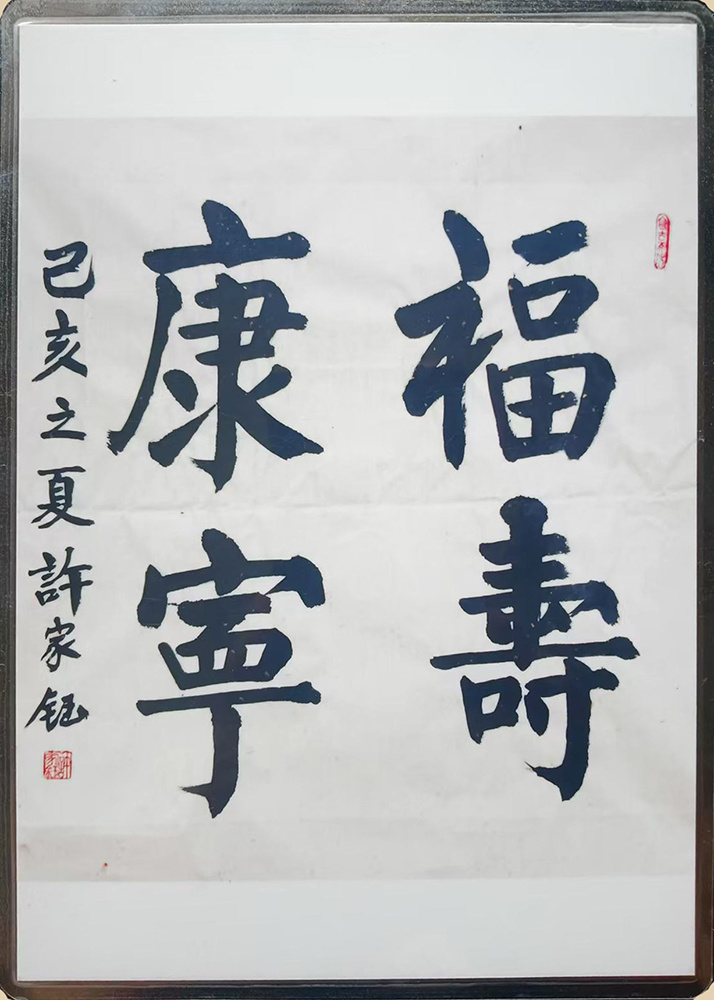 福壽
康寧
己亥之夏許家鈺